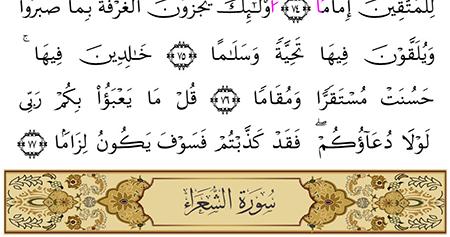 لِلْمُتَّقِينَ إِمَامًا ٧٤ أُو۟لَٰٓئِكَ يُجْزَوْنَ ٱلْغُرْفَةَ بِمَا صَبَرُوا۟
وَيُلَقَّوْنَ فِيهَا تَحِيَّةً وَسَلَٰمًا ٧٥ خَٰلِدِينَ فِيهَا ۚ
حَسُنَتْ مُسْتَقَرًّا وَمُقَامًا ٧٦ قُلْ مَا يَعْبَؤُا۟ بِكُمْ رَبِّى
لَوْلَا دُعَآؤُكُمْ ۖ فَقَدْ كَذَّبْتُمْ فَسَوْفَ يَكُونُ لِزَامًۢا ٧٧
سُورَةُ الشُّعَرَاءِ